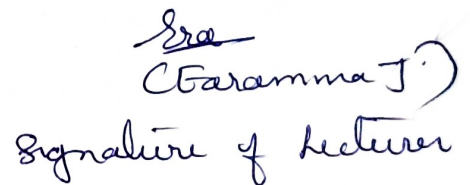 Era
(Earamma J.)
Signature of Lecturer